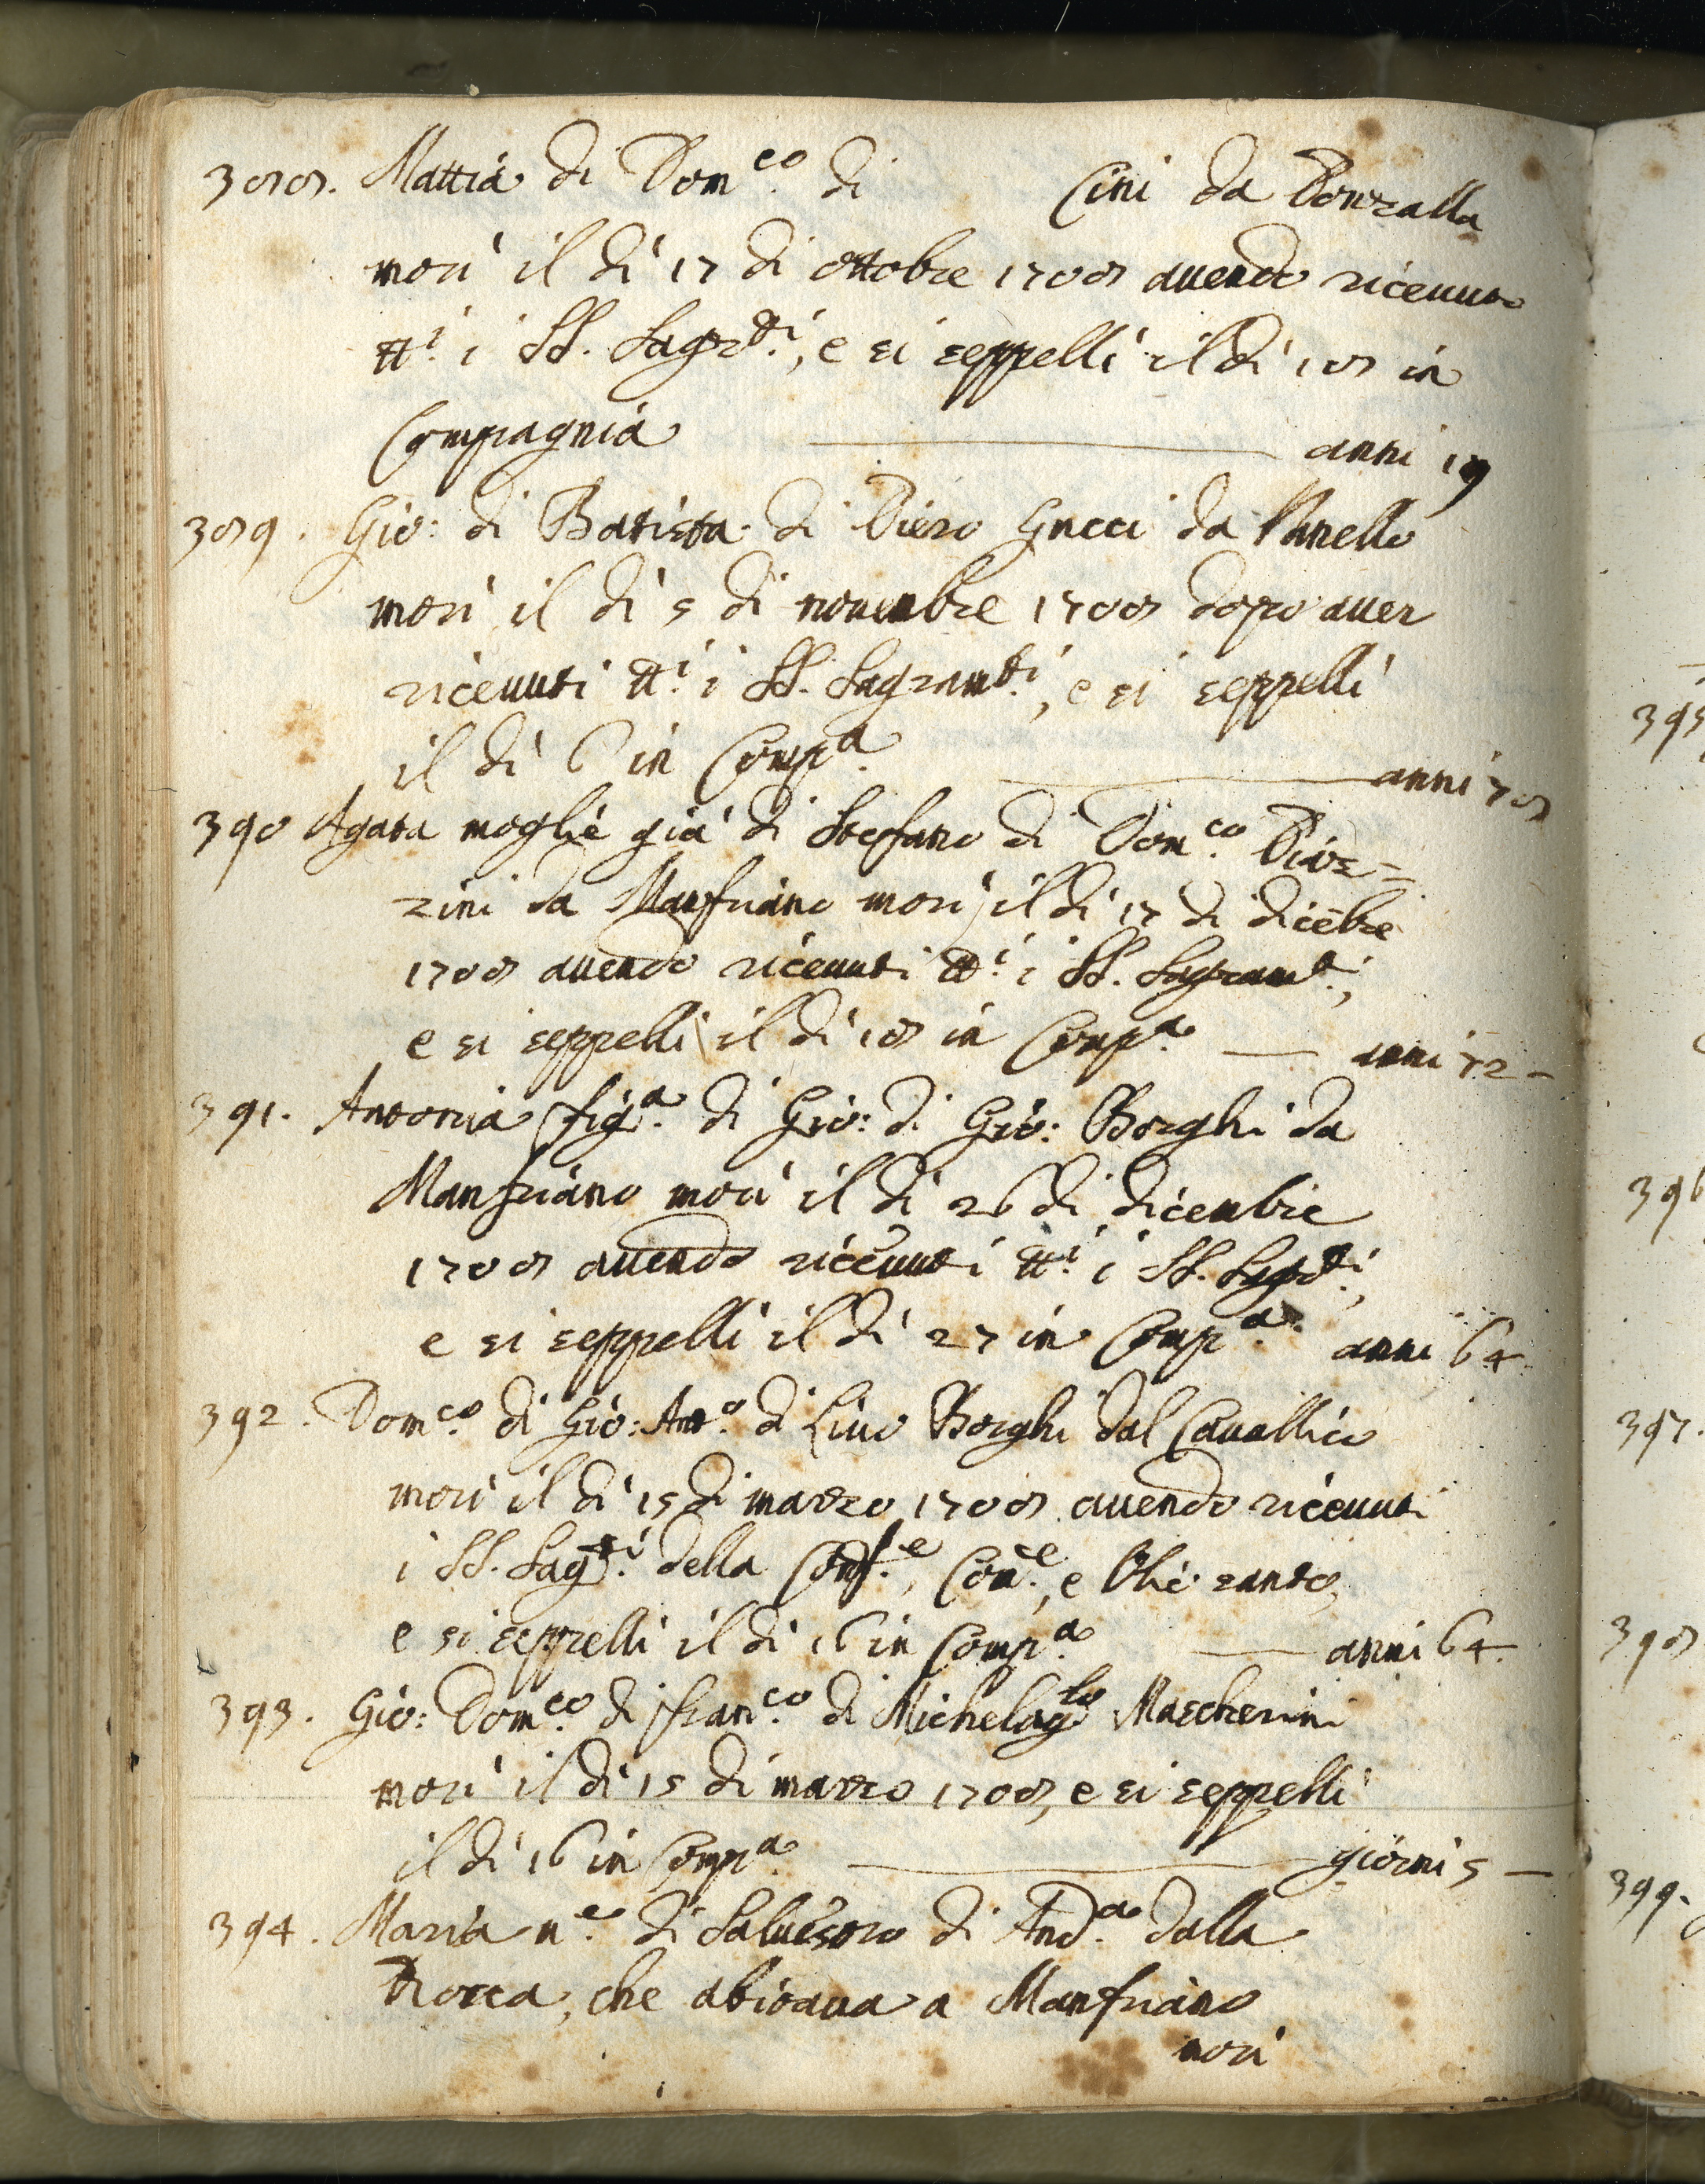 388. Mattia di Dom.co di Cini da Ponzalla
morì il dì 17 di ottobre 1708 avendo ricevuto
tt.i i SS. Sagr.ti, e si seppellì il dì 18 in
Compagnia anni 19
389. Gio: di Batista di Piero Gucci da Panello
morì il dì 5 di novembre 1708 dopo aver
ricevuti tt.i i SS. Sagram.ti, e si seppellì
il dì 6 in Comp.a anni 78
390 Agata moglie già di Stefano di Dom.co
zini da Manfriano morì il dì 17 di dicēbre
1708 avendo ricevuti tt.i i SS. Sagram.ti,
e si seppellì il dì 18 in Comp.a anni 72
391. Antonia fig.a di Gio: di Gio: Borghi da
Manfriano morì il dì 26 di dicembre
1708 avendo ricevuti tt.i i SS. Sagr.ti,
e si seppellì il dì 27 in Comp.a anni 64
392. Dom.co di Gio: Ant.o di Livo Borghi dal Cavallico
morì il dì 15 di marzo 1708 avendo ricevuti
i SS. Sag.ti della Conf.e, Com.e, e Olio santo,
e si seppellì il dì 16 in Comp.a anni 64
393. Gio: Dom.co di Fran.co di Michelag.lo Mascherini
morì il dì 15 di marzo 1708, e si seppellì
il dì 16 in Comp.a giorni 5
394. Maria m.e di Salvestro di And.a dalla
Rocca, che abitava a Manfriano
morì
395
396
397.
398
399.